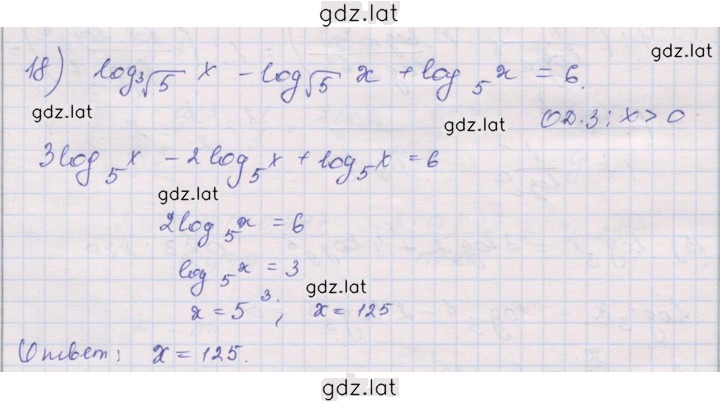 gdz.lat
18) log ∛5 x - log √5 x + log 5 x = 6.
gdz.lat
gdz.lat
gdz.lat
ОДЗ: x > 0
3 log 5 x - 2 log 5 x + log 5 x = 6
gdz.lat
2 log 5 x = 6
log 5 x = 3
gdz.lat
x = 5³; x = 125
Ответ: x = 125.
gdz.lat